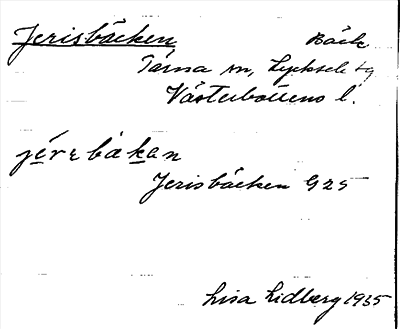 Jerisbäcken Bäck
Tärna sn, Lycksele tg
Västerbottens l.
jérɛbäkan
Jerisbäcken G25
Lisa Lidberg 1935